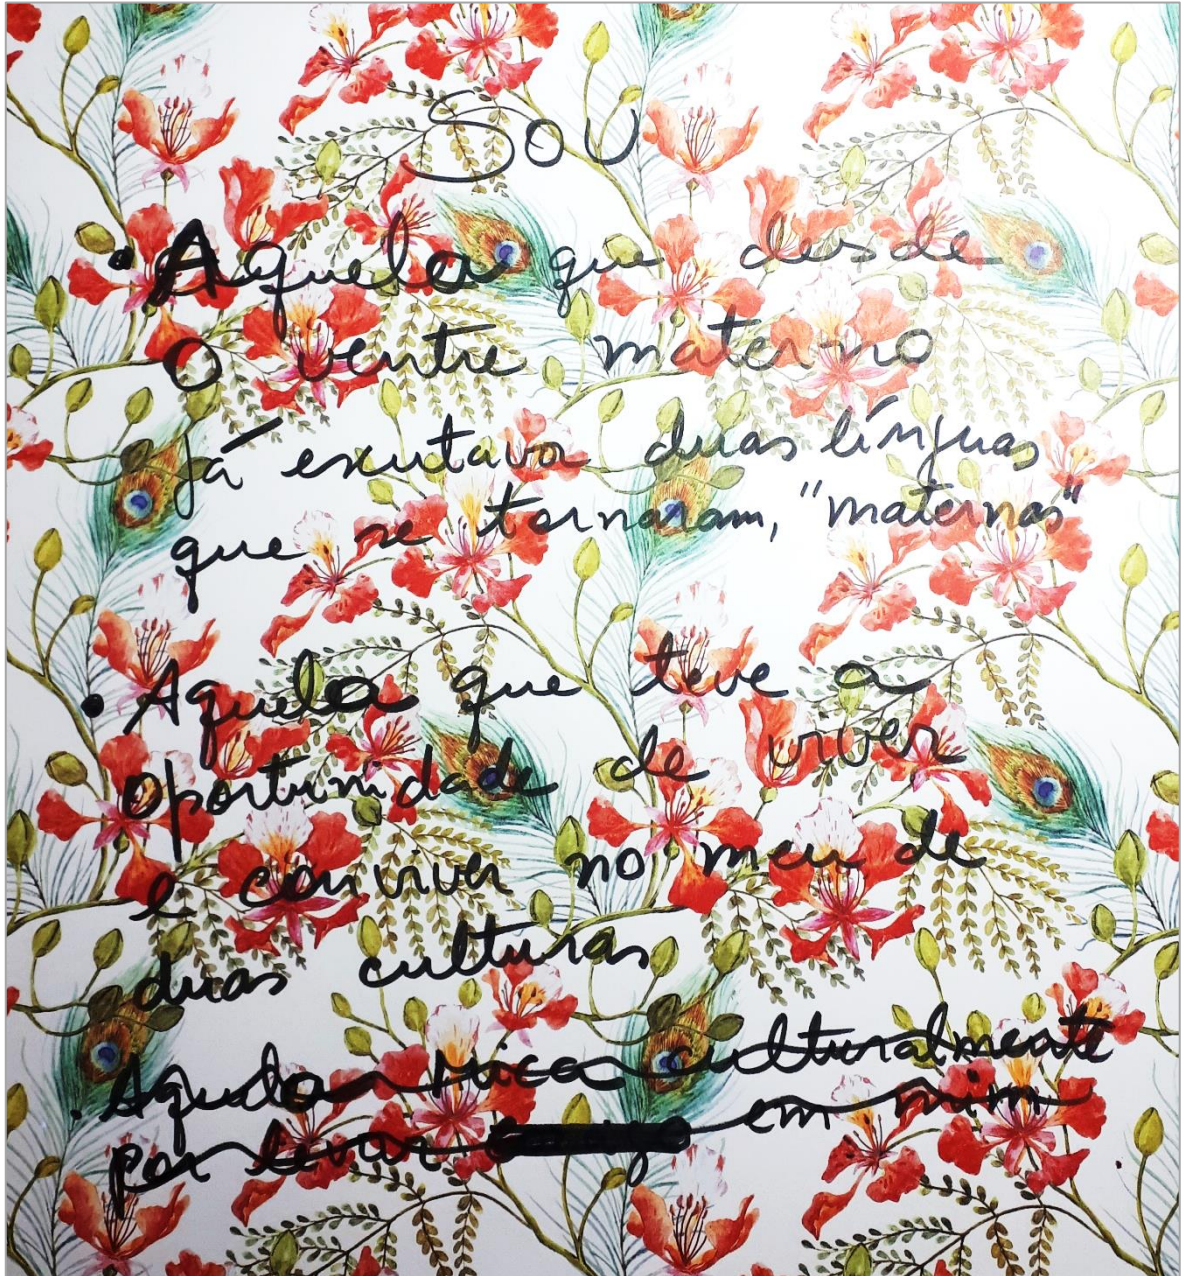 SOU
• Aquela que desde
o ventre materno
já escutava duas línguas
que se tornaram, "maternas"
• Aquela que teve a
oportunidade de viver
e conviver no meu de
duas culturas
. Aquela rica culturalmente
por levar em mim